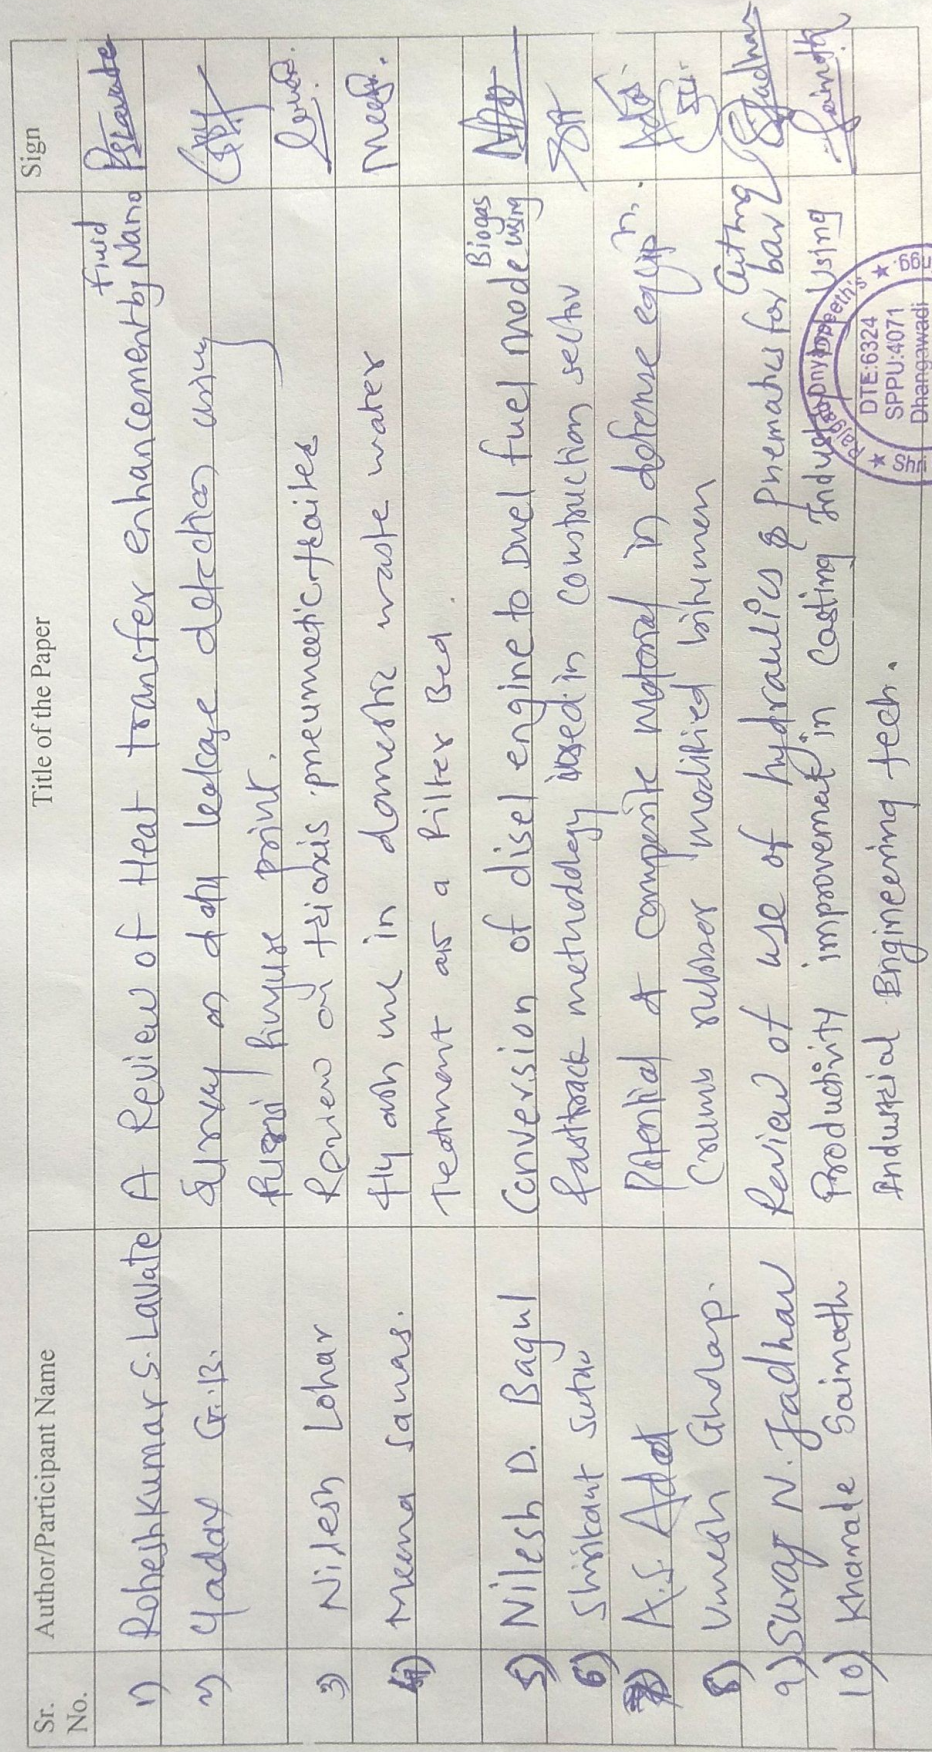 Sr. No. Author/Participant Name Title of the Paper Sign
1) Roheshkumar S. Lavate A Review of Heat transfer enhancement by Nano Fluid PSLavate
2) Yadav G.B. Survey on data leakage detection using
fingure print.
3) Nilesh Lohar Review on triaxis pneumeetic trailer
4) Meena Sanas. Fly ash use in domestic waste water Meena.
treatment as a Filter Bed.
5) Nilesh D. Bagul Conversion of disel engine to Duel fuel mode using Biogas
6) Shrikant Sutar fasttrack methodology used in construction sector
7) A.S. Adat Potential of composite material in defense equip
8) Umesh Gholap. Crumb rubber modified bitumen
9) Suraj N. Jadhav Review of use of hydraulics & pnematics for bar cutting SJadhav
10) Khamade Sainath Productivity improvement in Casting Industry Using Sainath
Industrial Engineering tech.
DTE:6324
SPPU:4071
Dhangawadi